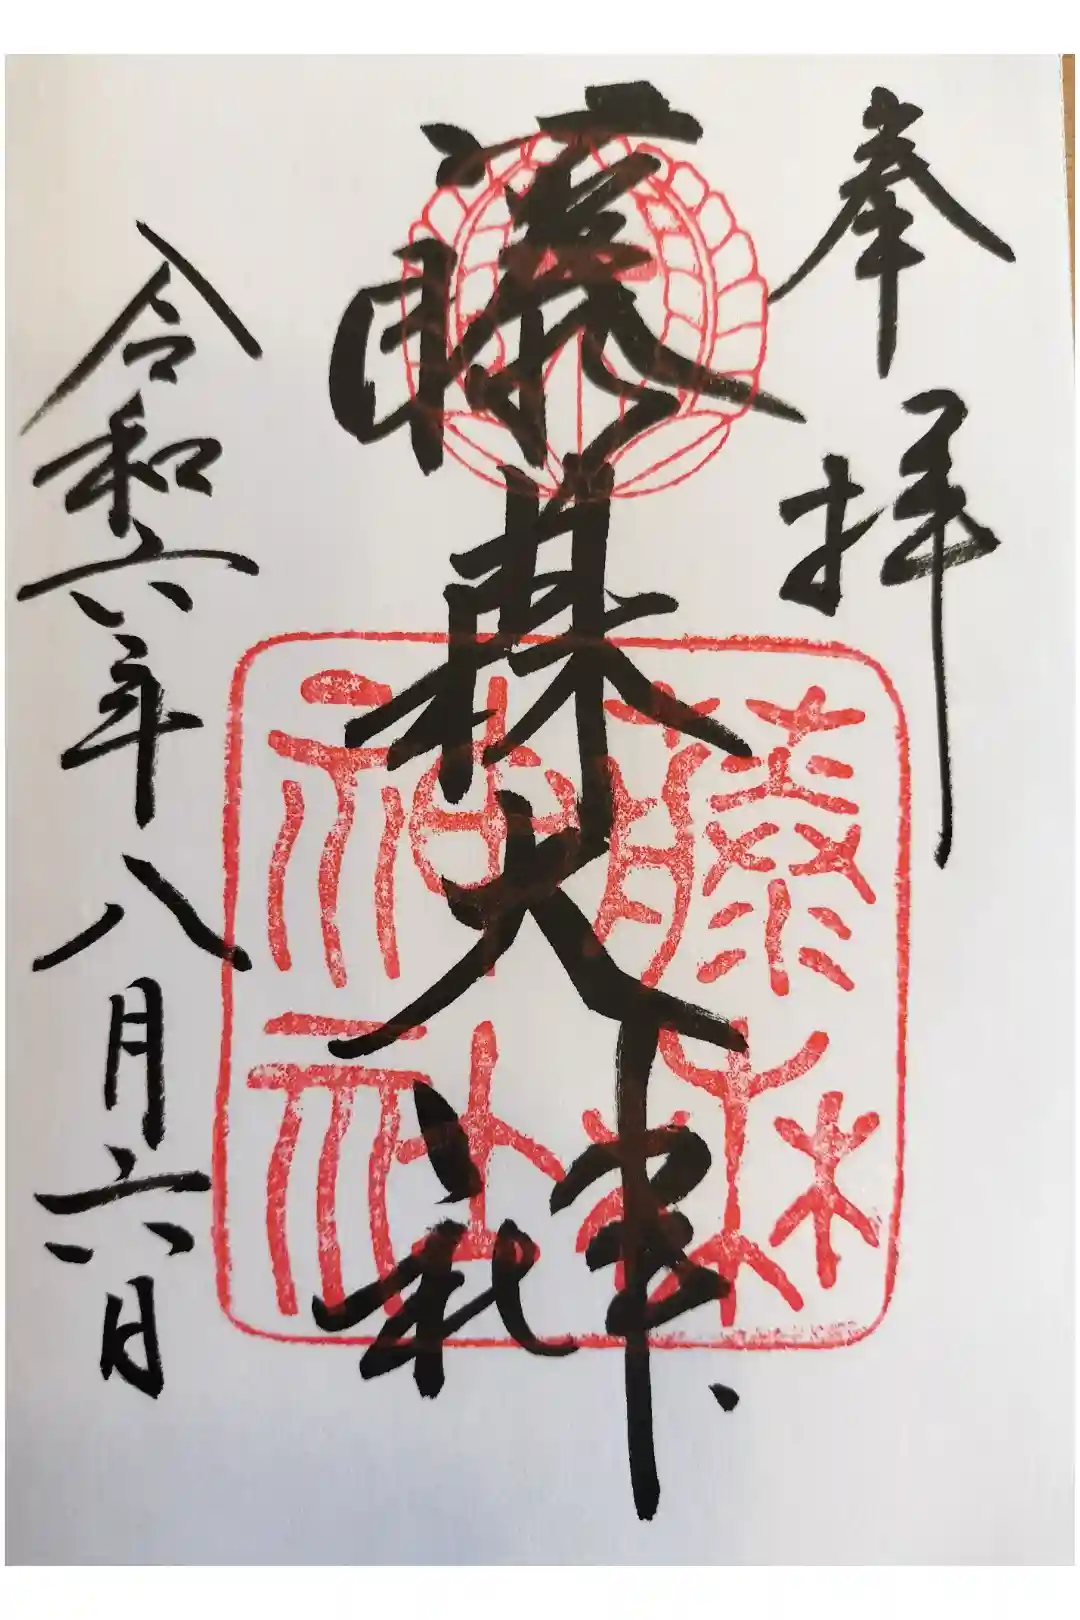 奉拝
藤森大神
藤森神社
令和六年八月六日